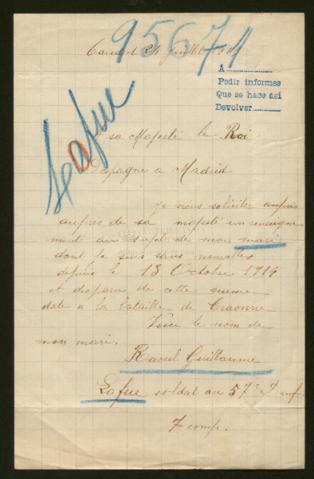 95671
Lafue
A
Pedir informes
Que se hace asi
Devolver
sa Majesté le Roi
Espagne a Madrid
Je vous soliciter auprès
auprès de sa majesté un renseigne
ment au sujet de mon mari
dont je suis sans nouvelles
depuis le 18 Octobre 1914
et disparu de cette meme
date a la bataille de Craonne
Voice le nom de
mon mari.
Raoul Guillaume
Lafue soldat au 57e d'inf
7 comp.